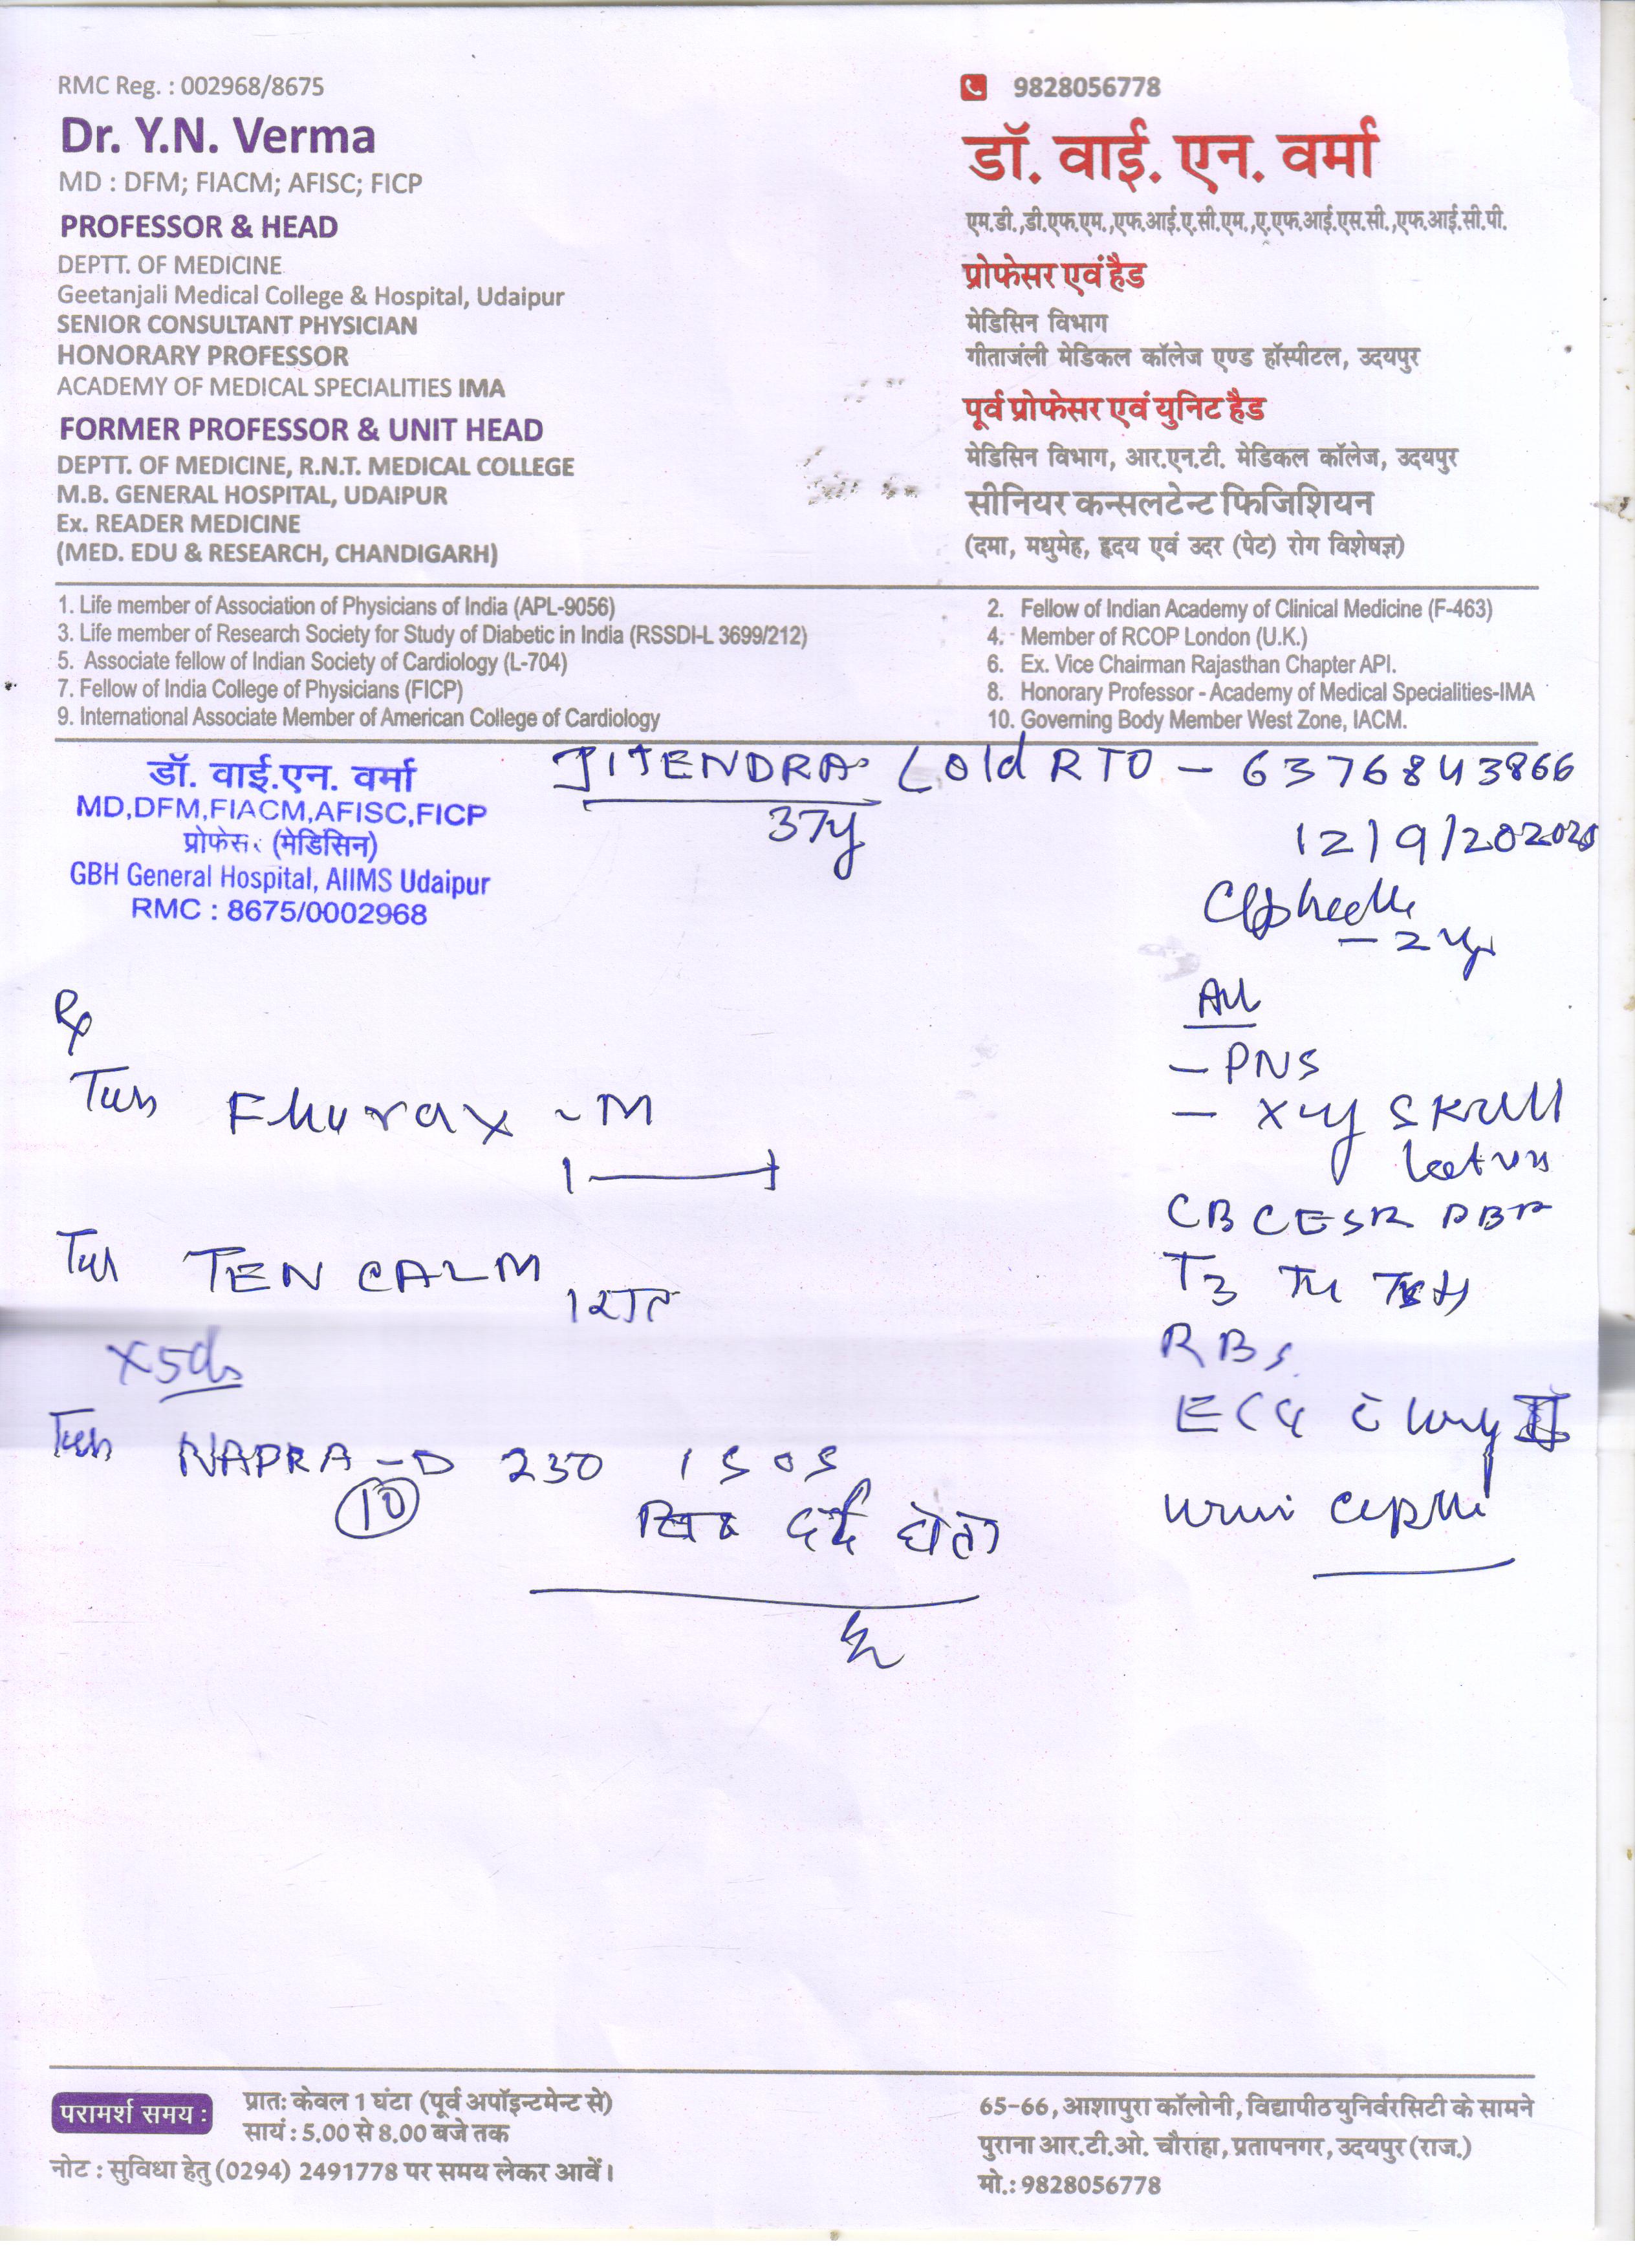 RMC Reg. : 002968/8675
Dr. Y.N. Verma
MD : DFM; FIACM; AFISC; FICP
PROFESSOR & HEAD
DEPTT. OF MEDICINE
Geetanjali Medical College & Hospital, Udaipur
SENIOR CONSULTANT PHYSICIAN
HONORARY PROFESSOR
ACADEMY OF MEDICAL SPECIALITIES IMA
FORMER PROFESSOR & UNIT HEAD
DEPTT. OF MEDICINE, R.N.T. MEDICAL COLLEGE
M.B. GENERAL HOSPITAL, UDAIPUR
Ex. READER MEDICINE
(MED. EDU & RESEARCH, CHANDIGARH)
9828056778
डॉ. वाई. एन. वर्मा
एम.डी.,डी.एफ.एम.,एफ.आई.ए.सी.एम.,ए.एफ.आई.एस.सी.,एफ.आई.सी.पी.
प्रोफेसर एवं हैड
मेडिसिन विभाग
गीताजंली मेडिकल कॉलेज एण्ड हॉस्पीटल, उदयपुर
पूर्व प्रोफेसर एवं युनिट हैड
मेडिसिन विभाग, आर.एन.टी. मेडिकल कॉलेज, उदयपुर
सीनियर कन्सलटेन्ट फिजिशियन
(दमा, मधुमेह, हृदय एवं उदर (पेट) रोग विशेषज्ञ)
1. Life member of Association of Physicians of India (APL-9056)
2. Fellow of Indian Academy of Clinical Medicine (F-463)
3. Life member of Research Society for Study of Diabetic in India (RSSDI-L 3699/212)
4. Member of RCOP London (U.K.)
5. Associate fellow of Indian Society of Cardiology (L-704)
6. Ex. Vice Chairman Rajasthan Chapter API.
7. Fellow of India College of Physicians (FICP)
8. Honorary Professor - Academy of Medical Specialities-IMA
9. International Associate Member of American College of Cardiology
10. Governing Body Member West Zone, IACM.
डॉ. वाई.एन. वर्मा
MD,DFM,FIACM,AFISC,FICP
(मेडिसिन)
GBH General Hospital, AIIMS Udaipur
RMC : 8675/0002968
JITENDRA Old RTO - 6376843866
37y
12/9/
- 2 yr
- PNS
- Xry SKull
CBC ESR PBF
T3 T4 TSH
RBS
ECG c long II
Rx
Tab -M
Tab TENCALM
1 रात
X5ds
Tab NAPRA-D 250 1 SOS
10
दर्द होता
परामर्श समय :
प्रातः केवल 1 घंटा (पूर्व अपॉइन्टमेन्ट से)
सायं : 5.00 से 8.00 बजे तक
नोट : सुविधा हेतु (0294) 2491778 पर समय लेकर आवें।
65-66, आशापुरा कॉलोनी, विद्यापीठ युनिर्वरसिटी के सामने
पुराना आर.टी.ओ. चौराहा, प्रतापनगर, उदयपुर (राज.)
मो.: 9828056778